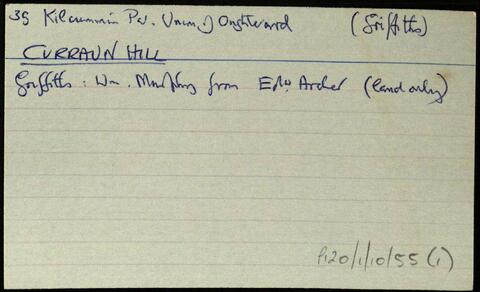 35 Kilcummin Par. Unnn.) Oughterard (Griffiths)
CURRAUN HILL
Griffiths: Wm. Murphy from Edw. Archer (land only)
P120/1/10/55 (1)